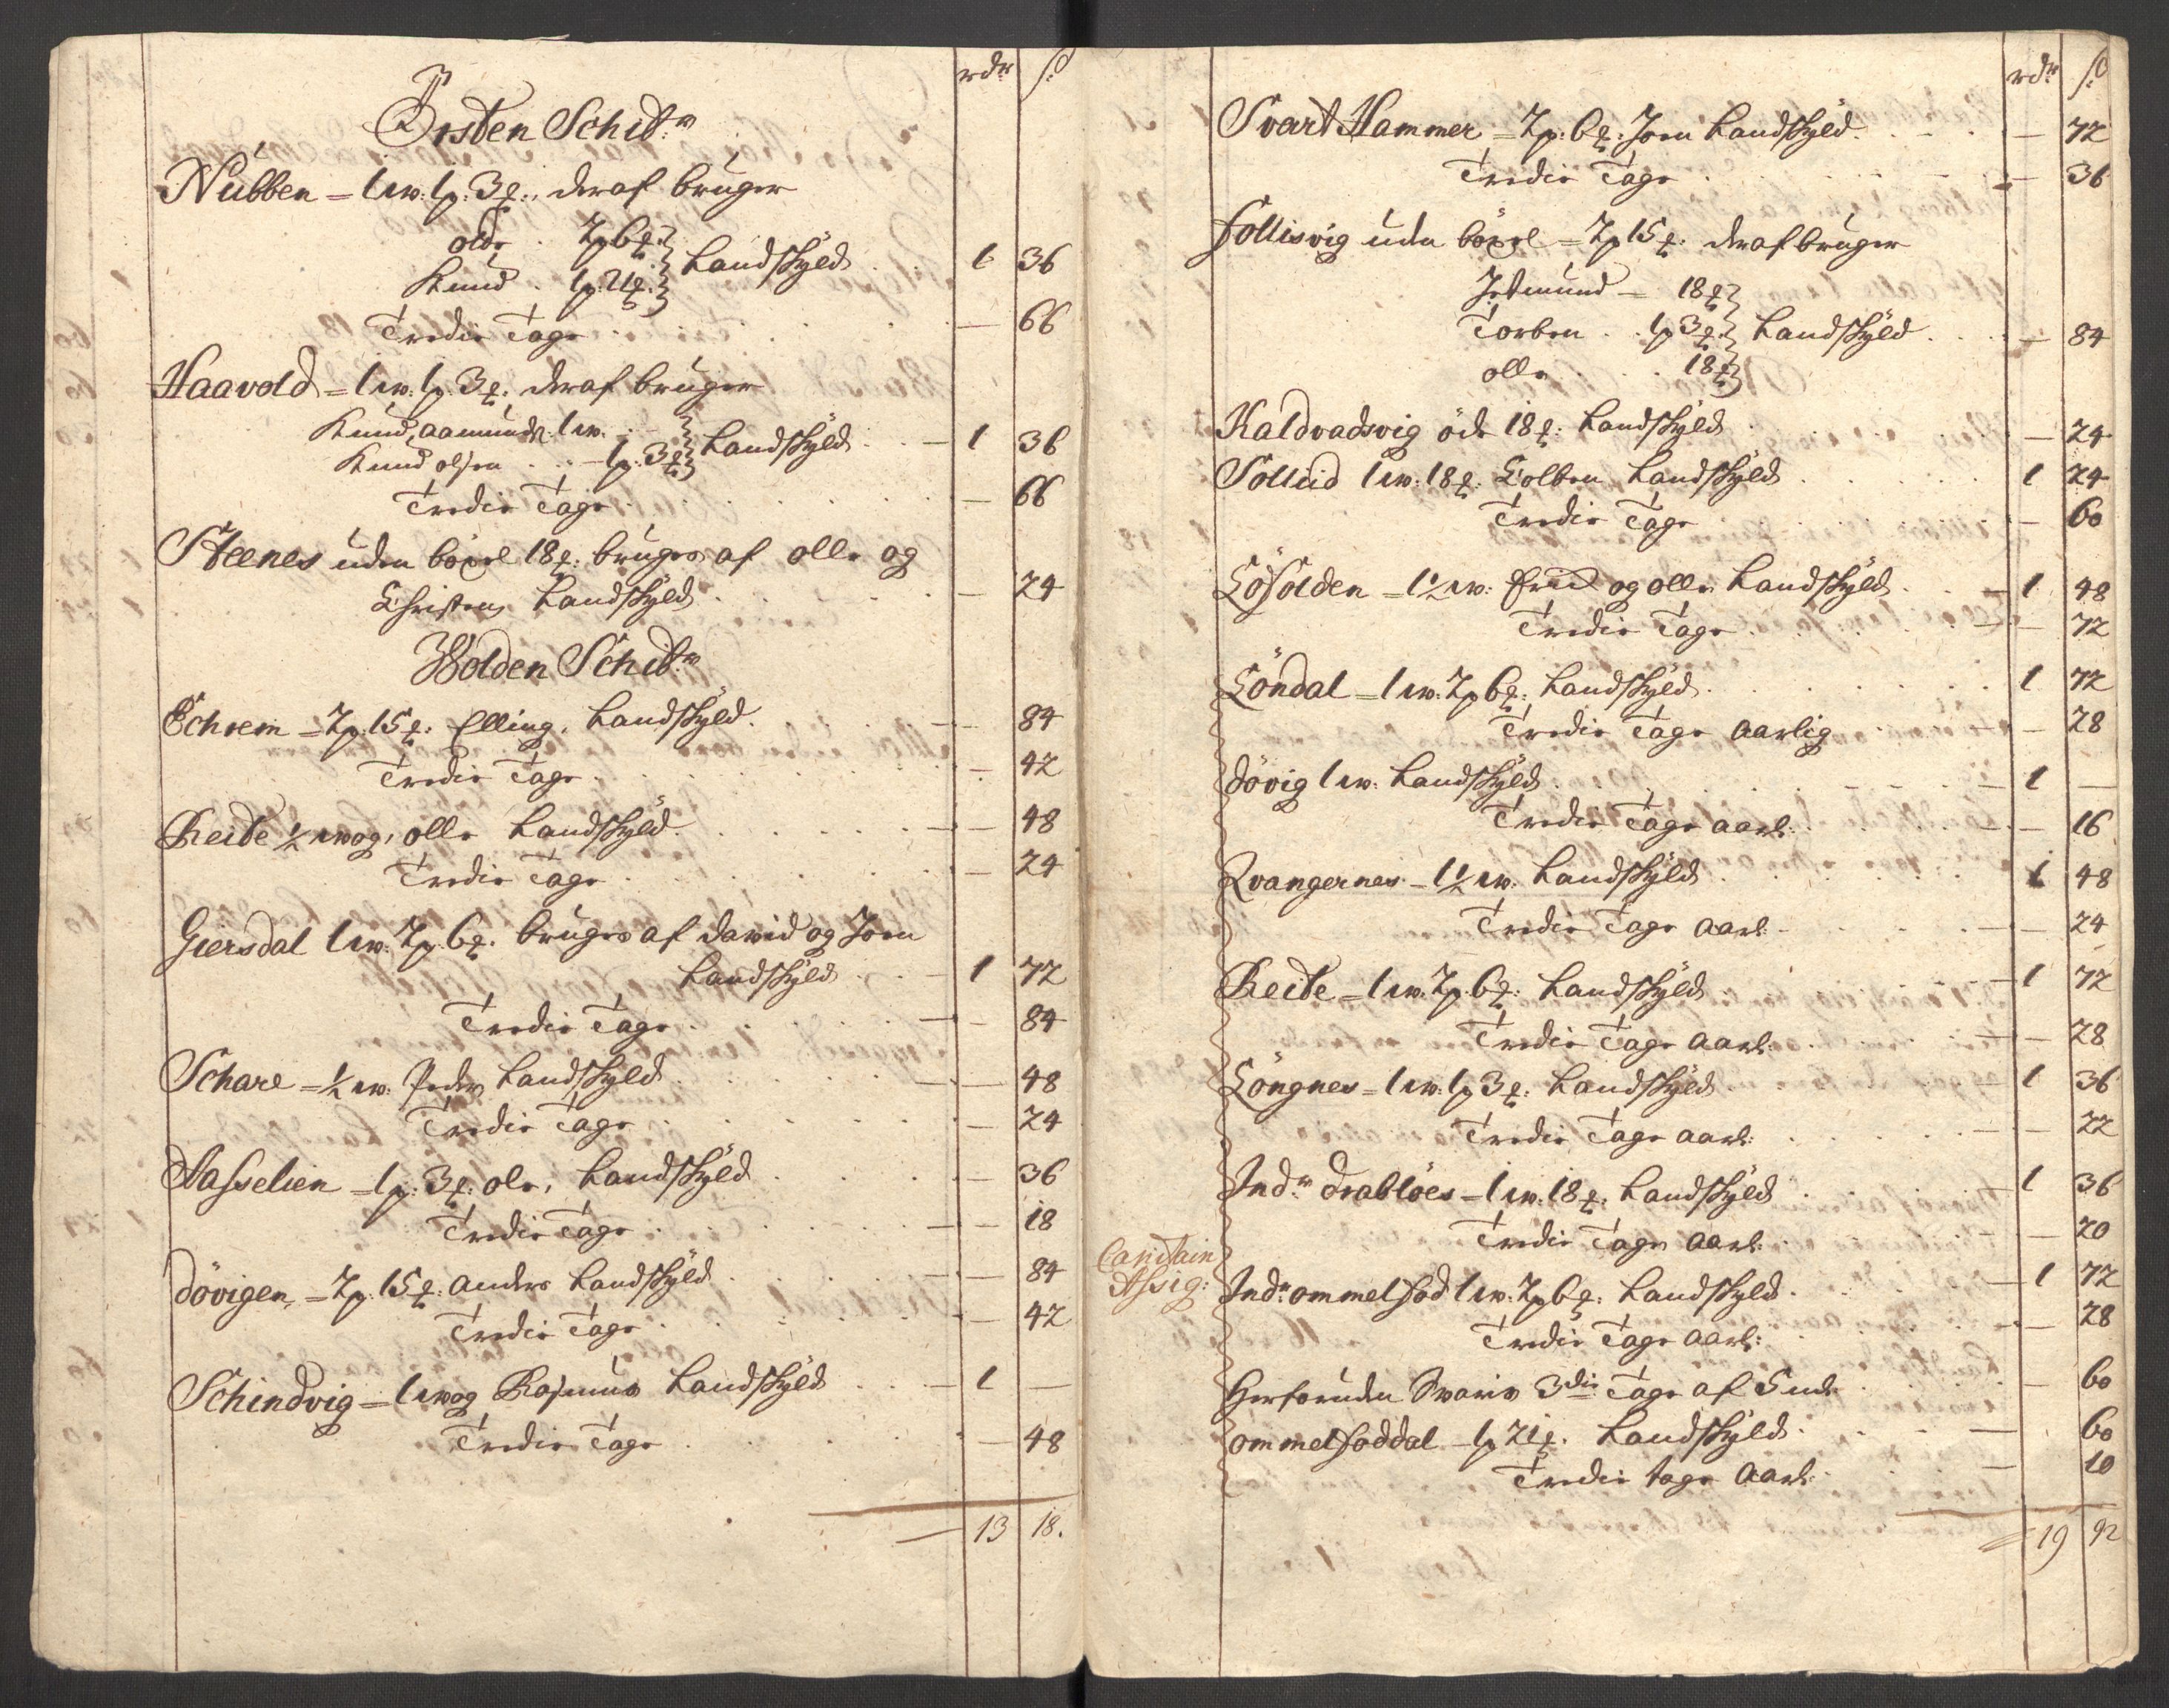 rdr ß
Örsten Schibr
Nubben = 1 w: 1 p: 3 ℔: deraf bruger
olde . 2 p 6 ℔.
Knud . 1 p. 21 ℔. Landskyld . 1 36
Tredie Tage . — 66
Haavold = 1 w: 1 p. 3 ℔. deraf bruger
Knud Aamunds: 1 w.
Knud olsen . . 1 p. 3 ℔ Landskyld . . — 1 36
Tredie Tage . — 66
Steenes uden böxel 18 ℔: bruges af olle og
Christen Landskyld . — 24
Wolden Schibr
Echrem = 2 p. 15 ℔: Elling, Landskyld. — 84
Tredie Tage . — 42
Reite ½ wog, olle Landskyld. — 48
Tredie Tage . — 24
Giersdal 1 w. 2 p. 6 ℔. bruges af david og Joen
Landskyld . . — 1 72
Tredie Tage . — 84
Schare = ½ w. Peder Landskyld . — 48
Tredie Tage . — 24
Hasselien = 1 p: 3 ℔: ole, Landskyld . — 36
Tredie Tage . — 18
Dövigen = 2 p. 15 ℔: anders Landskyld . — 84
Tredie Tage . — 42
Schindvig = 1 wog Rasmus Landskyld . . — 1 —
Tredie Tage . — 48
— 13 18.
rdr ß
Svart Hammer = 2 p: 6 ℔: Joen Landskyld. — 72
Tredie Tage . — 36
Follisvig uden böxel = 2 p 15 ℔: deraf bruger
Jetmund — 18 ℔
Torben . . 1 p 3 ℔. Landskyld . . — 84
olle . . 18 ℔
Kaldvadsvig öde 18 ℔: Landskyld . — 24
Sollid 1 w: 18 ℔: Colben Landskyld . 1 24
Tredie Tage . — 60
Löfolden = 1½ w: og olle Landskyld . — 1 48
Tredie Tage . — 72
Löndal = 1 w: 2 p 6 ℔: Landskyld . 1 72
Tredie Tage aarlig . — 28
Dövig 1 w: Landskyld . — 1 —
Tredie Tage aarl: . — 16
Qvangernes = 1½ w. Landskyld . 1 48
Tredie Tage aarl: — 24
Reite = 1 w. 2 p. 6 ℔: Landskyld — 1 72
Tredie Tage aarl: . — 28
Löngnes = 1 w. 1 p 3 ℔: Landskyld . — 1 36
Tredie Tage aarl: . — 22
Indr Drablöes = 1 w. 18 ℔: Landskyld . — 1 36
Tredie Tage aarl: . — 20
Capitain
Assig:
Indr ommelfod 1 w. 2 p 6 ℔: Landskyld . — 1 72
Tredie Tage aarl: . — 28
Herforuden Svares 3die Tage af . — 60
ommelfoddal = 1 p 21 ℔. Landskyld . — 60
Tredie tage aarl: . — 10
= 19 92